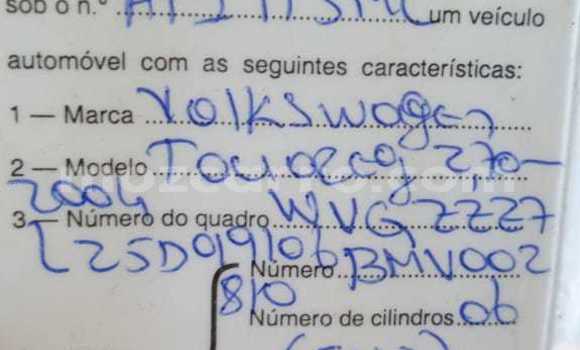 sob o n.º um veículo
automóvel com as seguintes características:
1 — Marca Volkswagen
2 — Modelo Touoreg 2,70
2004
3 — Número do quadro WVGZZZ7
LZ5D019106
Número BMV002
810
Número de cilindros 06